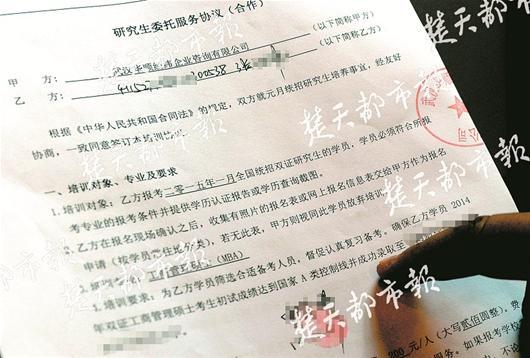 研究生委托服务协议（合作）
甲 方： 企业咨询有限公司 （以下简称甲方）
乙 方： （以下简称乙方）
根据《中华人民共和国合同法》的规定，双方就元月统招研究生培养事宜，经友好
协商，一致同意签订本培训协议
一、培训对象、专业及要求
1. 培训对象：乙方报考二〇一五年一月全国统招双证研究生的学员，学员必须符合所报
考专业的报考条件并提供学历认证报告或学历查询截图。
2. 乙方在报名现场确认之后，收集有照片的报名表或网上报名信息表交给甲方作为报名
申请（按学员 分类），若无此表，甲方则视同此学员放弃培训
3. 管理硕士（MBA）
4. 培训要求：为乙方学员筛选合适备考人员，督促认真复习备考。确保乙方学员 2014
年双证工商管理硕士考生初试成绩达到国家 A 类控制线并成功录取至
200 元/人（大写贰佰圆整）。费
服务。如果报考学校
不论
楚天都市报
楚天都市报
楚天都市报
楚天都市报
楚天都市报